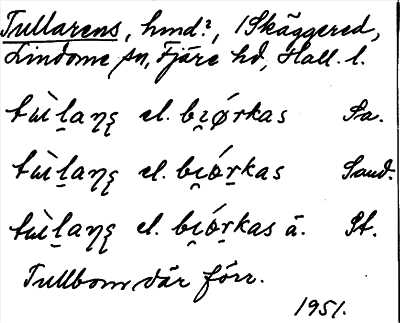 Tullarens, hmd?, i Skäggered,
Lindome sn, Fjäre hd, Hall. l.
tùḷaŋȩ el. bı̯ǿrkas Sa.
tùḷaŋȩ el. bı̯ǿrkas Sand.
tùḷaŋȩ el. bı̯ǿrkas ä. St.
Tullbom där förr.
1951.